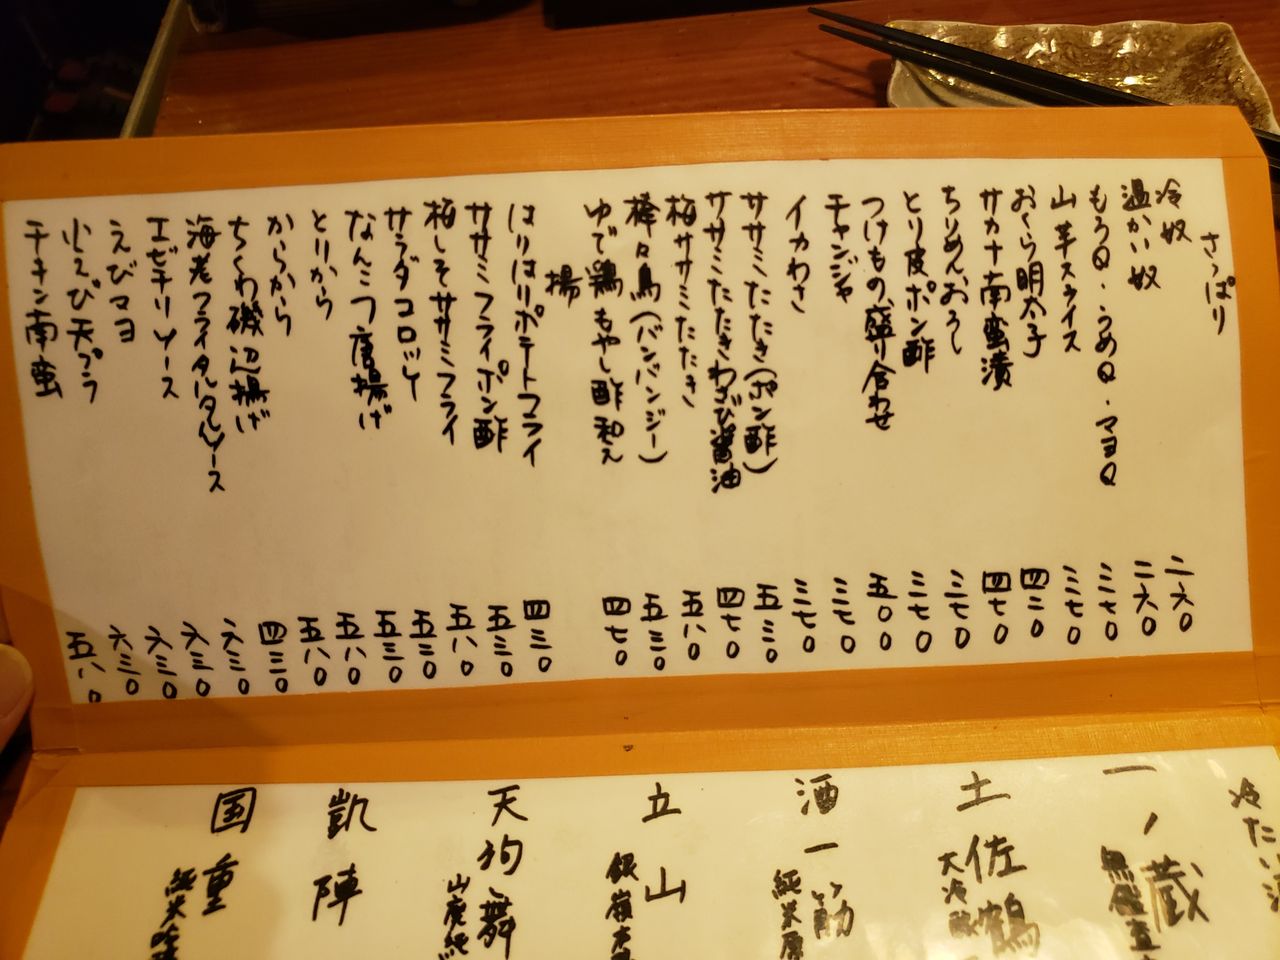 さっぱり
冷奴 二六〇
温かい奴 二六〇
もろQ・うめQ・マヨQ 三七〇
山芋スライス 三七〇
おくら明太子 四三〇
サカナ南蛮漬 四七〇
ちりめんおろし 三七〇
とり皮ポン酢 三七〇
つけもの盛り合わせ 五〇〇
チャンジャ 三七〇
イカわさ 三七〇
ササミたたき(ポン酢) 五三〇
ササミたたきわさび醤油 四七〇
梅ササミたたき 五八〇
棒々鳥(バンバンジー) 五三〇
ゆで鶏もやし酢和え 四七〇
揚
はりはりポテトフライ 四三〇
ササミフライポン酢 五三〇
梅しそササミフライ 五八〇
サラダコロッケ 五三〇
なんこつ唐揚げ 五三〇
とりから 五八〇
からから 五八〇
ちくわ磯辺揚げ 四三〇
海老フライタルタルソース 六三〇
エビチリソース 六三〇
えびマヨ 六三〇
小えび天プラ 六三〇
チキン南蛮 五八〇
冷たい
一ノ蔵
無鑑査
土佐鶴
大冷酔
酒一筋
純米原
立山
銀嶺
天狗舞
山廃純
凱陣
国重
純米吟